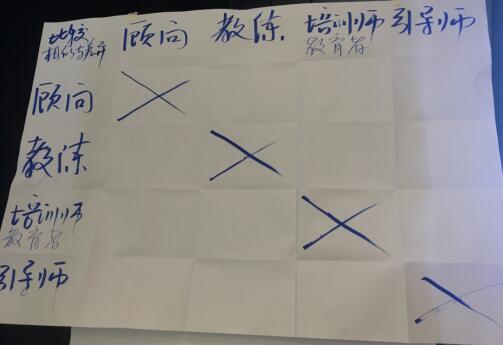 比较
相似与差异
顾问
教练
培训师
教育者
引导师
顾问
教练
培训师
教育者
引导师